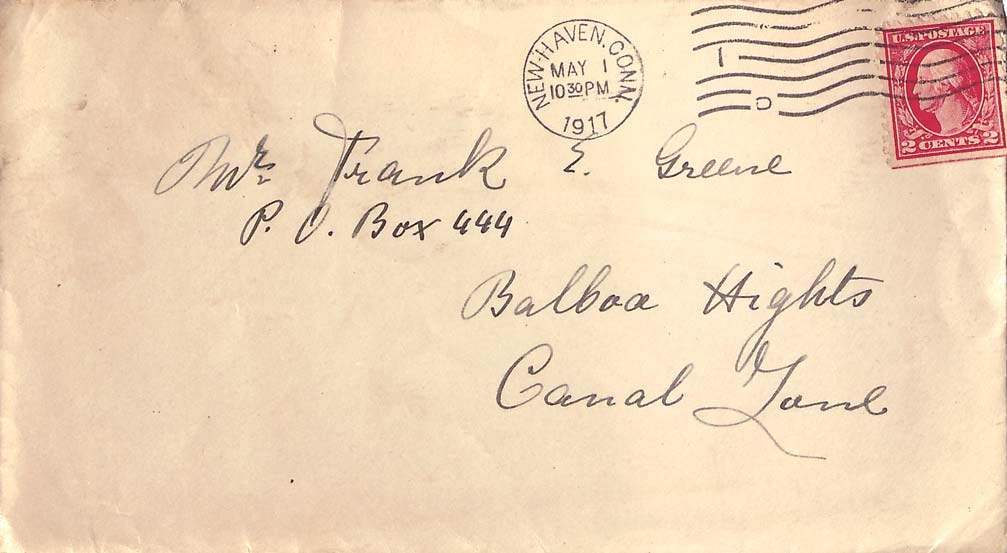 NEW-HAVEN. CONN.
MAY 1
10 30 PM
1917
1
D
U.S. POSTAGE
2 CENTS 2
Mr. Frank E. Greene
P. O. Box 444
Balboa Hights
Canal Zone